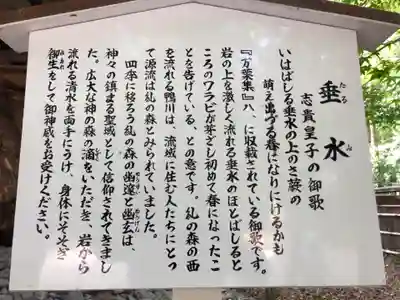 垂水
たる
み
志貴皇子の御歌
いはばしる垂水の上のさ蕨の
萌え出づる春になりにけるかも
『万葉集』八、に収載されている御歌です。
岩の上を激しく流れる垂水のほとばしると
ころのワラビが芽ざし初めて春になったこ
とを告げている、との意です。糺の森の西
を流れる鴨川は、流域に住む人たちにとっ
て源流は糺の森とみられていました。
四季に移ろう糺の森の幽邃と幽玄は、
神々の鎮まる聖域として信仰されてきまし
た。広大な神の森の滴をいただき、岩から
流れる清水を両手にうけ、身体にそそぎ
御生をして御神威をお受けください。